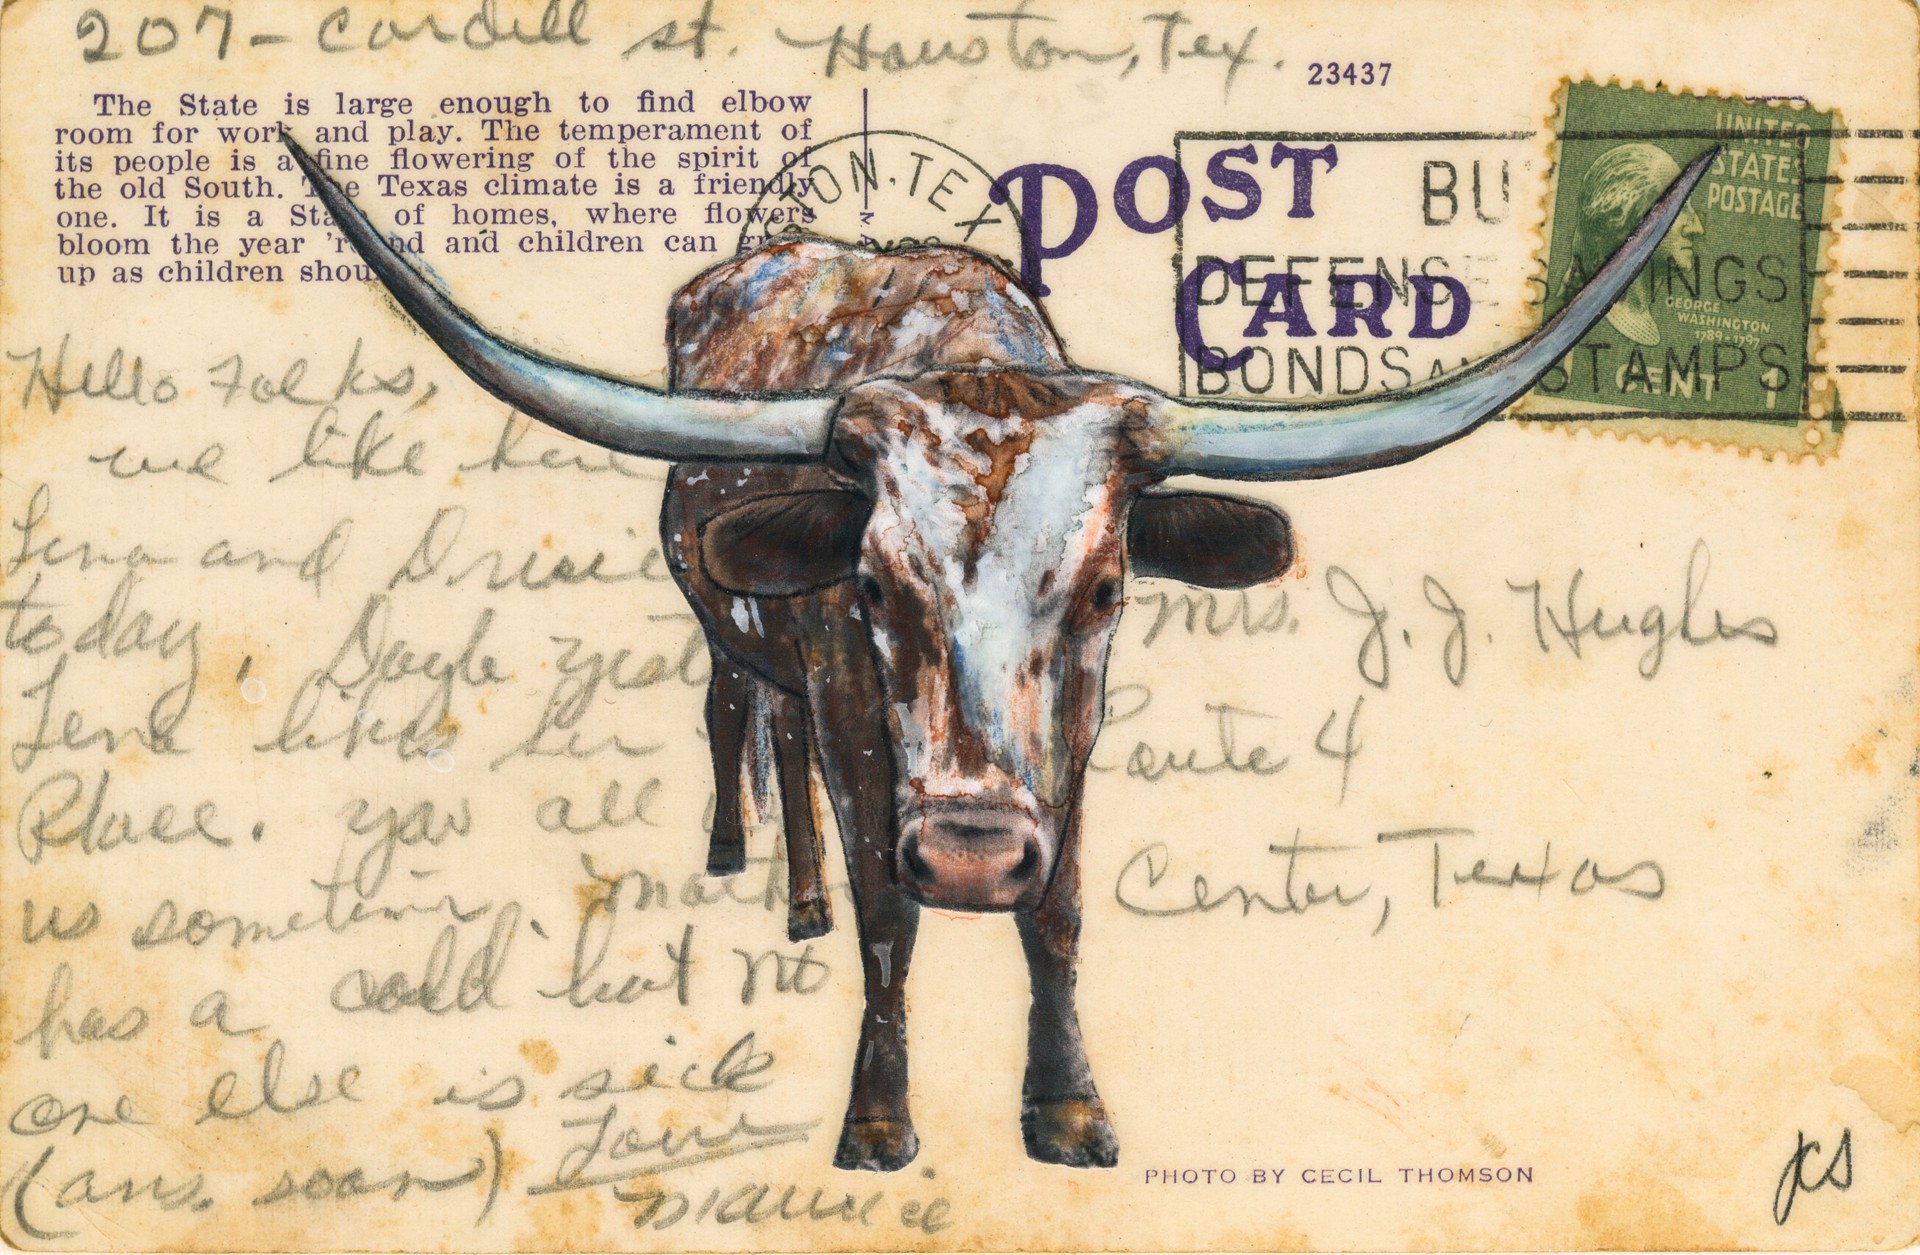 207 - Cordell st. Houston, Tex.
23437
The State is large enough to find elbow
room for work and play. The temperament of
its people is a fine flowering of the spirit of
the old South. The Texas climate is a friendly
one. It is a State of homes, where flowers
bloom the year 'round and children can
up as children
TON, TEX
POST
CARD
BU
DEFENSE SAVINGS
BONDS AND STAMPS
UNITED
STATES
POSTAGE
GEORGE
WASHINGTON
1789-1797
CENT 1
Hello Folks,
we like here
Lena and
today, Doyle yest
Lena likes her
Place. you all
us sometime. Moth
has a cold but no
one else is sick
(ans. soon) Love
Maurice
Mrs. J. J. Hughes
Route 4
Center, Texas
PHOTO BY CECIL THOMSON
JCS